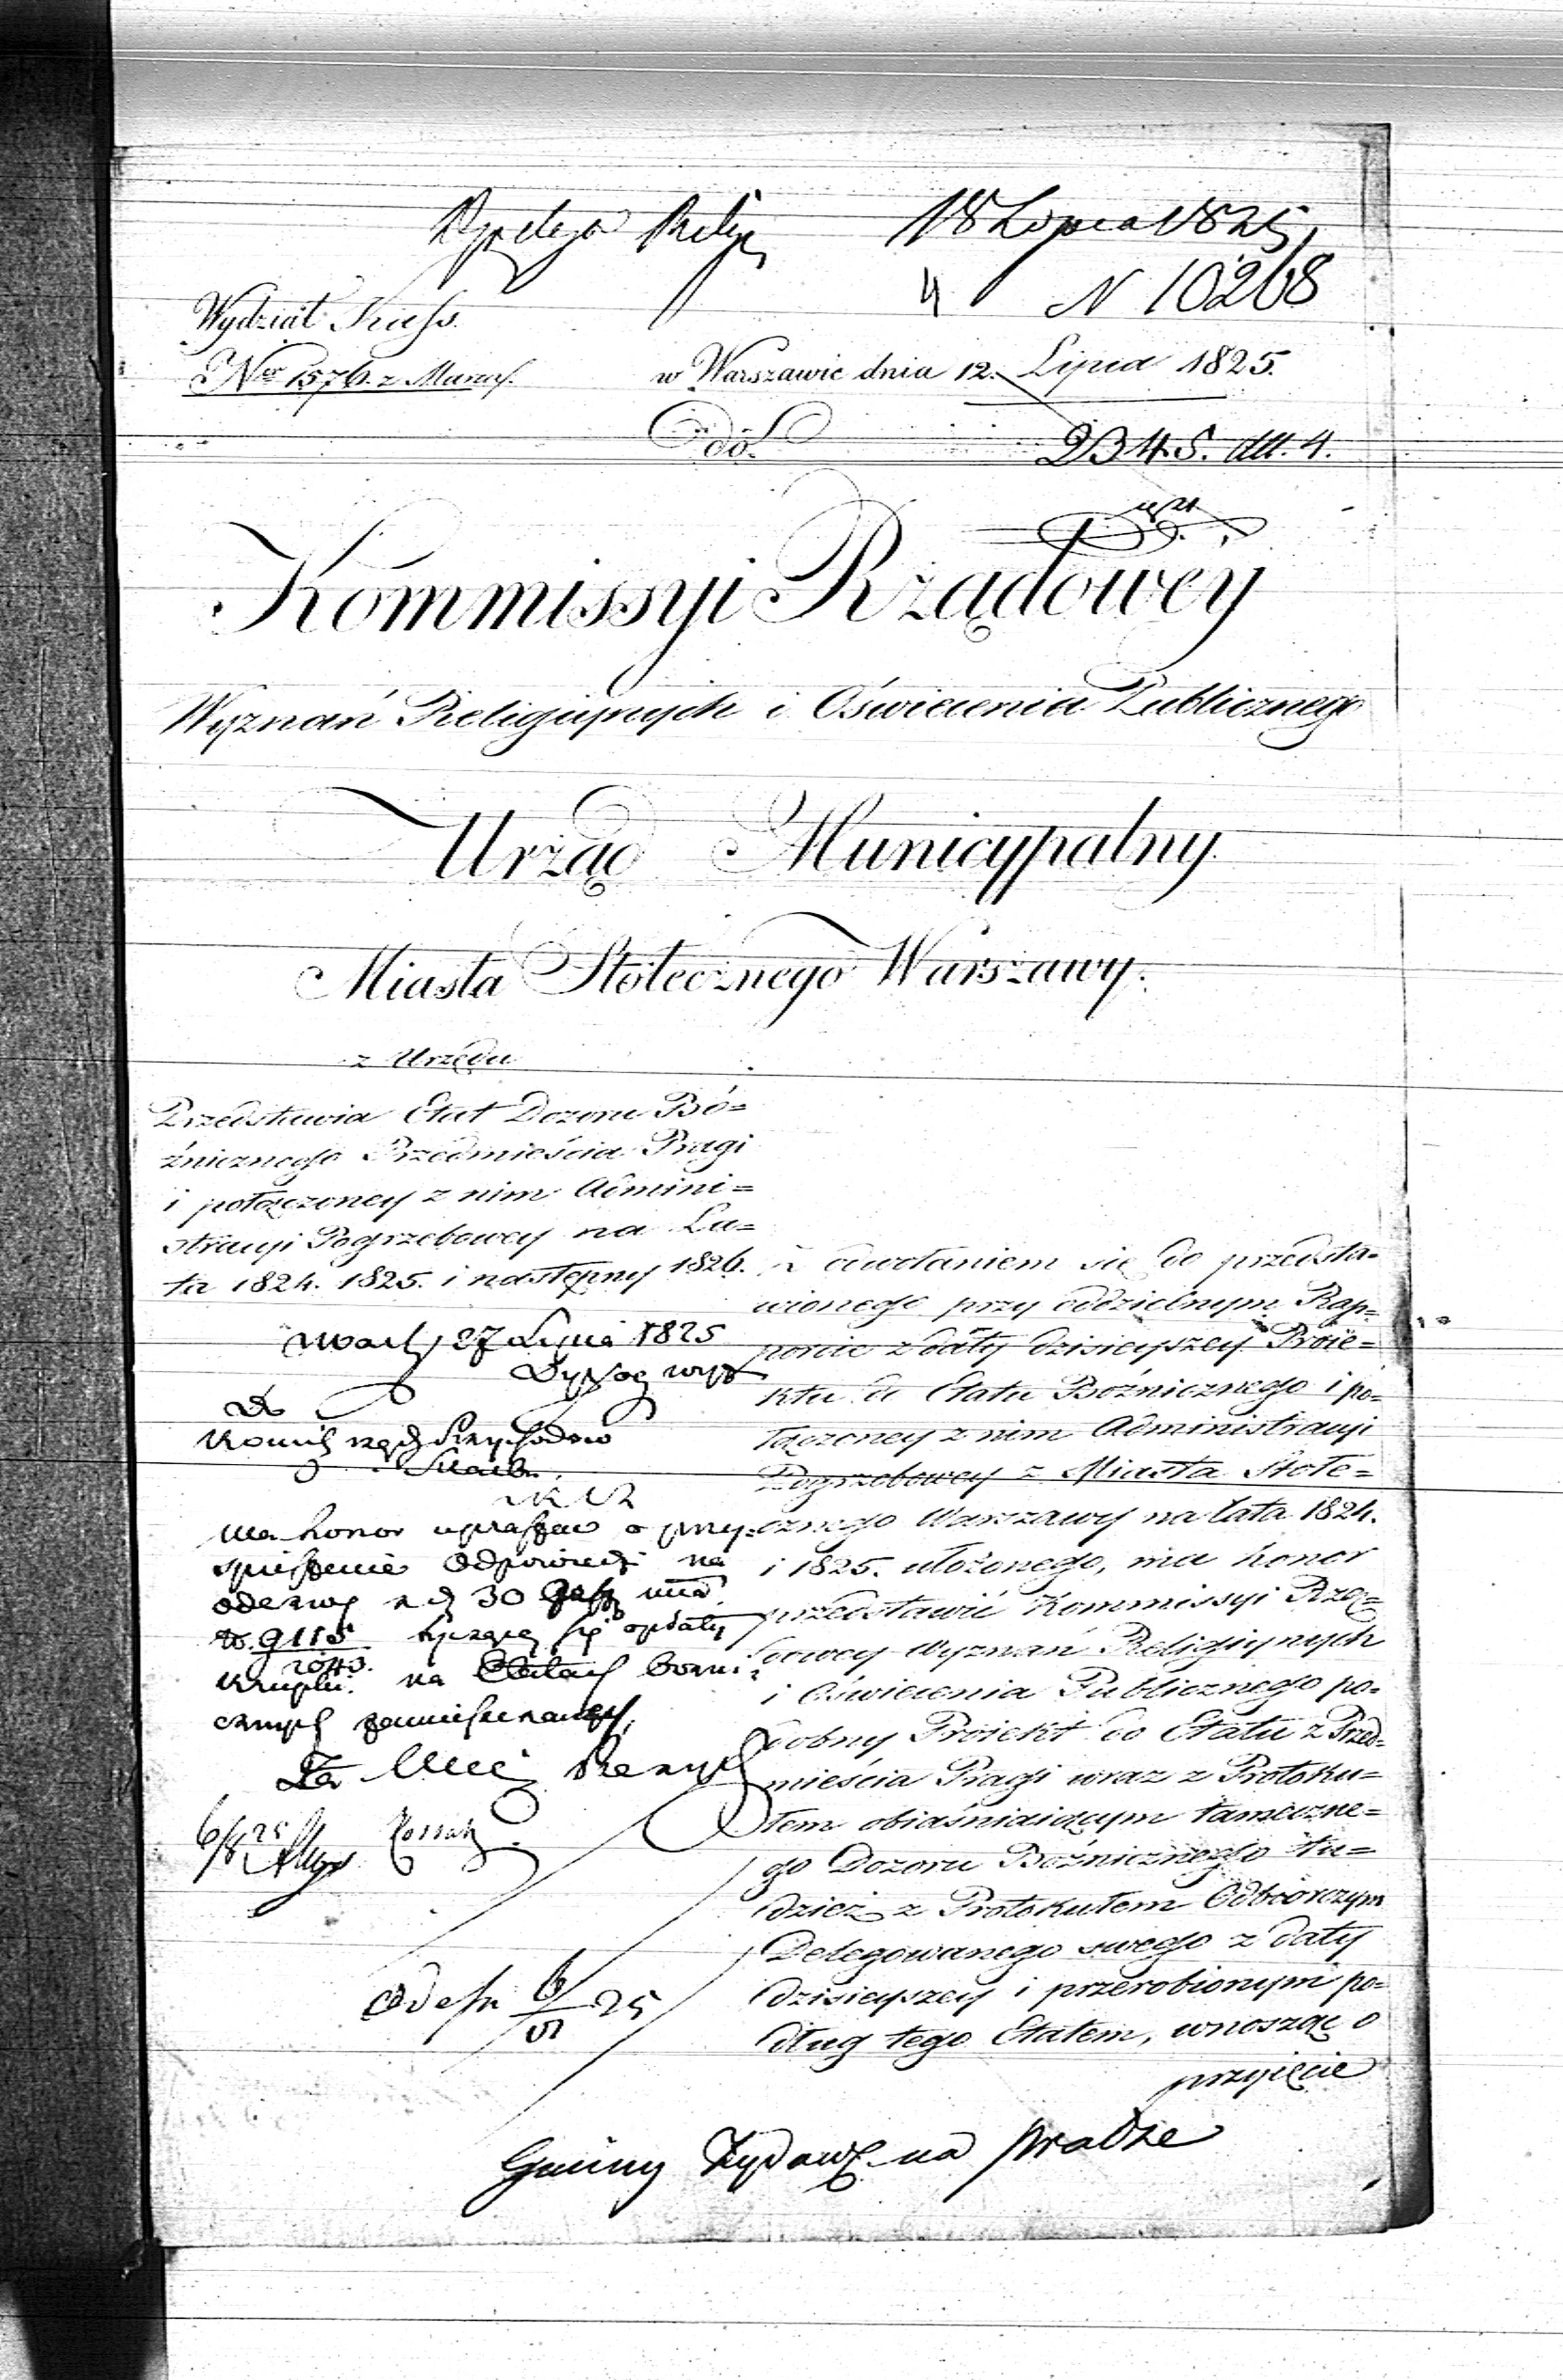 18 Lipca 1825
N 10268
Wydział
w Warszawie dnia 12. Lipca 1825.
do
Kommissyi Rządowey
Wyznań Religijnych i Oświecenia Publicznego
Urząd Municypalny
Miasta Stołecznego Warszawy.
z Urzędu
Przedstawia Etat Dozoru Bó=
żnicznego Przedmieścia Pragi
i połączoney z nim Admini=
stracyi Pogrzebowey na La=
ta 1824. 1825. i następny 1826.
27 Lipca 1825
Do
Przychodów
Skarbu
ma honor o przy=
spieszenie odpowiedzi na
odezwę z d 30
No. 9115 się opłaty
2043.
na Etatach
Za
6/8 25
25
Z odwołaniem się do przedsta=
wionego przy oddzielnym Rap=
porcie z daty dzisieyszey Proie=
ktu do Etatu Bóżnicznego i po=
łączoney z nim Administracyi
Pogrzebowey z Miasta Stołe=
cznego Warszawy na lata 1824.
i 1825. ułożonego, ma honor
przedstawić Kommissyi Rzą=
dowey Wyznań Religijnych
i Oświecenia Publicznego po=
dobny Proiekt do Etatu z Przed=
mieścia Pragi wraz z Protoku=
łem obiaśniaiącym tameczne=
go Dozoru Bóżnicznego tu=
dzież z Protokułem Odbiorczym
Delegowanego swego z daty
dzisieyszey i przerobionymi po=
dług tego Etatem, wnosząc o
przyięcie
Gminy Żydows. na Pradze